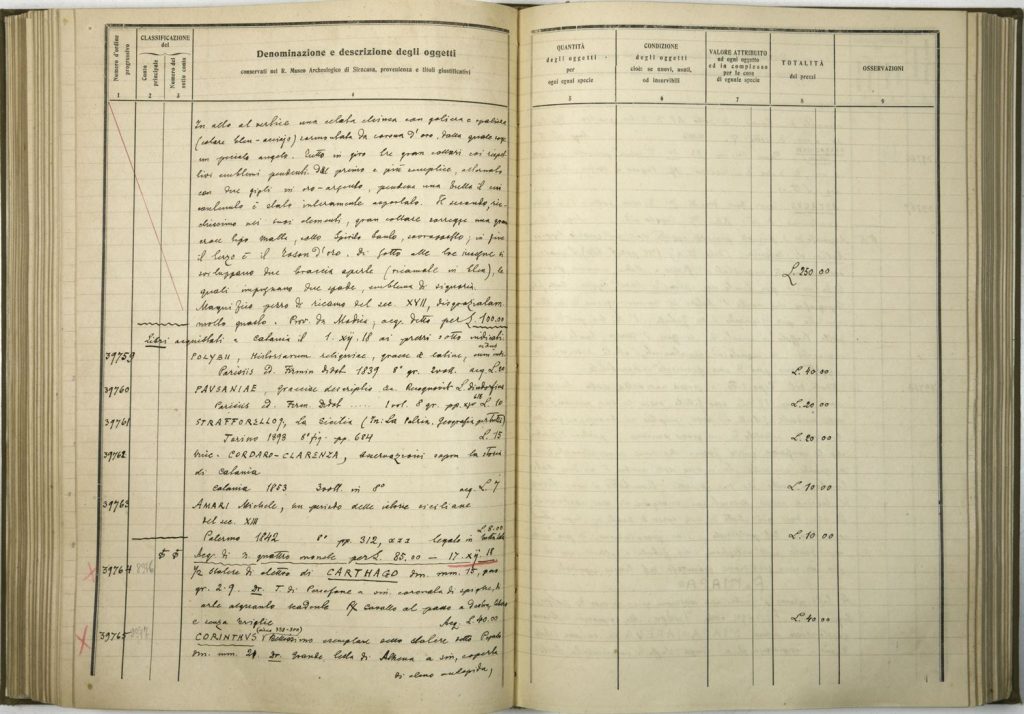 Numero d'ordine progressivo
CLASSIFICAZIONE del
Conto principale
Numero del sotto conto
Denominazione e descrizione degli oggetti
conservati nel R. Museo Archeologico di Siracusa, provenienza e titoli giustificativi
QUANTITÀ degli oggetti per ogni egual specie
CONDIZIONE degli oggetti cioè: se nuovi, usati, od inservibili
VALORE ATTRIBUITO ad ogni oggetto ed in complesso per le cose di eguale specie
TOTALITÀ dei prezzi
OSSERVAZIONI
1 2 3 4 5 6 7 8 9
In alto al vertice una celata chiusa con goliera e
(colore bleu-acciajo) sormontata da corona d'oro, dalla quale
un piccolo angelo. Tutto in giro tre gran collari coi
emblemi pendenti. Dal primo e più semplice, alternato
con due gigli in oro-argento, pendeva una il cui
contenuto è stato interamente asportato. Il secondo,
nei suoi elementi, gran collare sorregge una gran
croce tipo Malta, collo Spirito Santo, ; in fine
il terzo è il Toson d'oro. Di sotto alle tre insegne si
sviluppano due braccia aperte (ricamate in bleu), le
quali impugnano due spade, emblema di signoria. L. 250 00
Magnifico pezzo di ricamo del sec. XVII, disgraziatam.
molto guasto. Prov. da Modica, acq. detto per L. 100.00
Libri acquistati a Catania il 1. xij. 18 ai prezzi sotto indicati
39759 POLYBII, Historiarum reliquiae, graece et latine, cum
Parisiis Ed. Firmin Didot 1839 8° gr. 2 voll. acq. L. 20 L. 40 00
39760 PAUSANIAE, Graeciae descriptio. Recognovit L. Dindorfius
Parisiis Ed. Firm. Didot ..... 1 vol. 8 gr. pp. L. 10 L. 20 00
39761 STRAFFORELLO, La Sicilia (In: La Patria. Geografia
Torino 1893 8° fig. pp. 684 L. 15 L. 20 00
39762 CORDARO-CLARENZA, Osservazioni sopra la storia
di Catania
Catania 1853 3 voll. in 8° acq. L. 7 L. 10 00
39763 AMARI Michele, un periodo delle istorie siciliane
del sec. XIII
Palermo 1842 8° pp. 312, legato in L. 8.00 L. 10 00
Acq. di n. quattro monete per L. 85.00 — 17. xij. 18
39764 Statere di elettro di CARTHAGO dm. mm. 15, pes.
gr. 2.9. Dr. T. di Persefone a sin. coronata di spighe, di
arte alquanto scadente. R/ Cavallo al passo a destra,
e senza Acq. L. 40.00 L. 40 00
39765 CORINTHVS (circa 350-300) Bellissimo esemplare dello statere detto Pegaso
dm. mm. 21. Dr. Grande testa di Athena a sin. coperta
di elmo